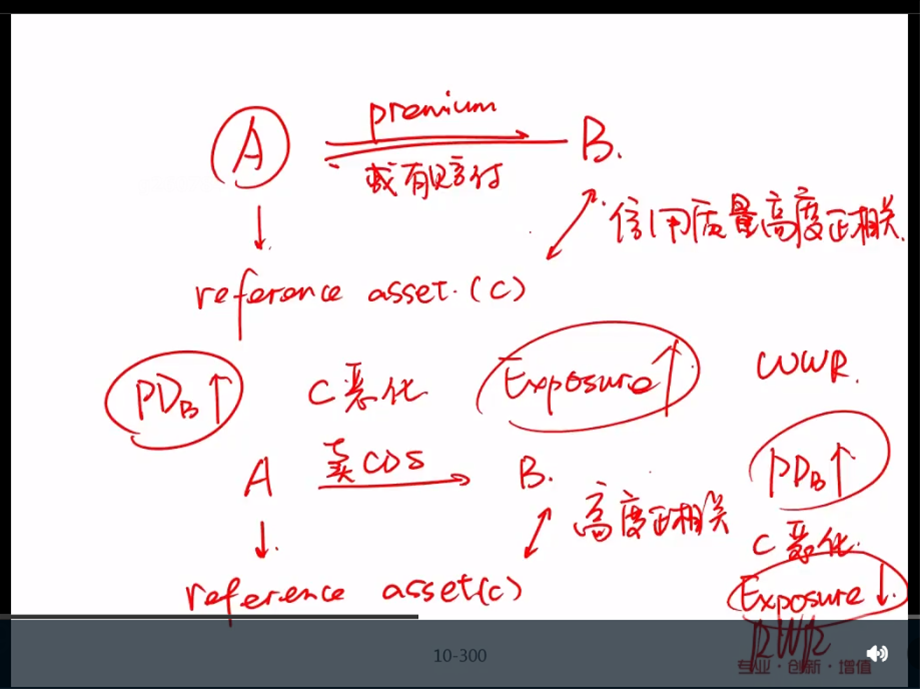 premium
A
B.
或有赔付
信用质量高度正相关.
reference asset.(C)
PD_B↑
C恶化
Exposure↑
WWR.
A
卖CDS
B.
PD_B↑
高度正相关
C恶化.
reference asset(C)
Exposure↓.
RWR
10-300
专业·创新·增值